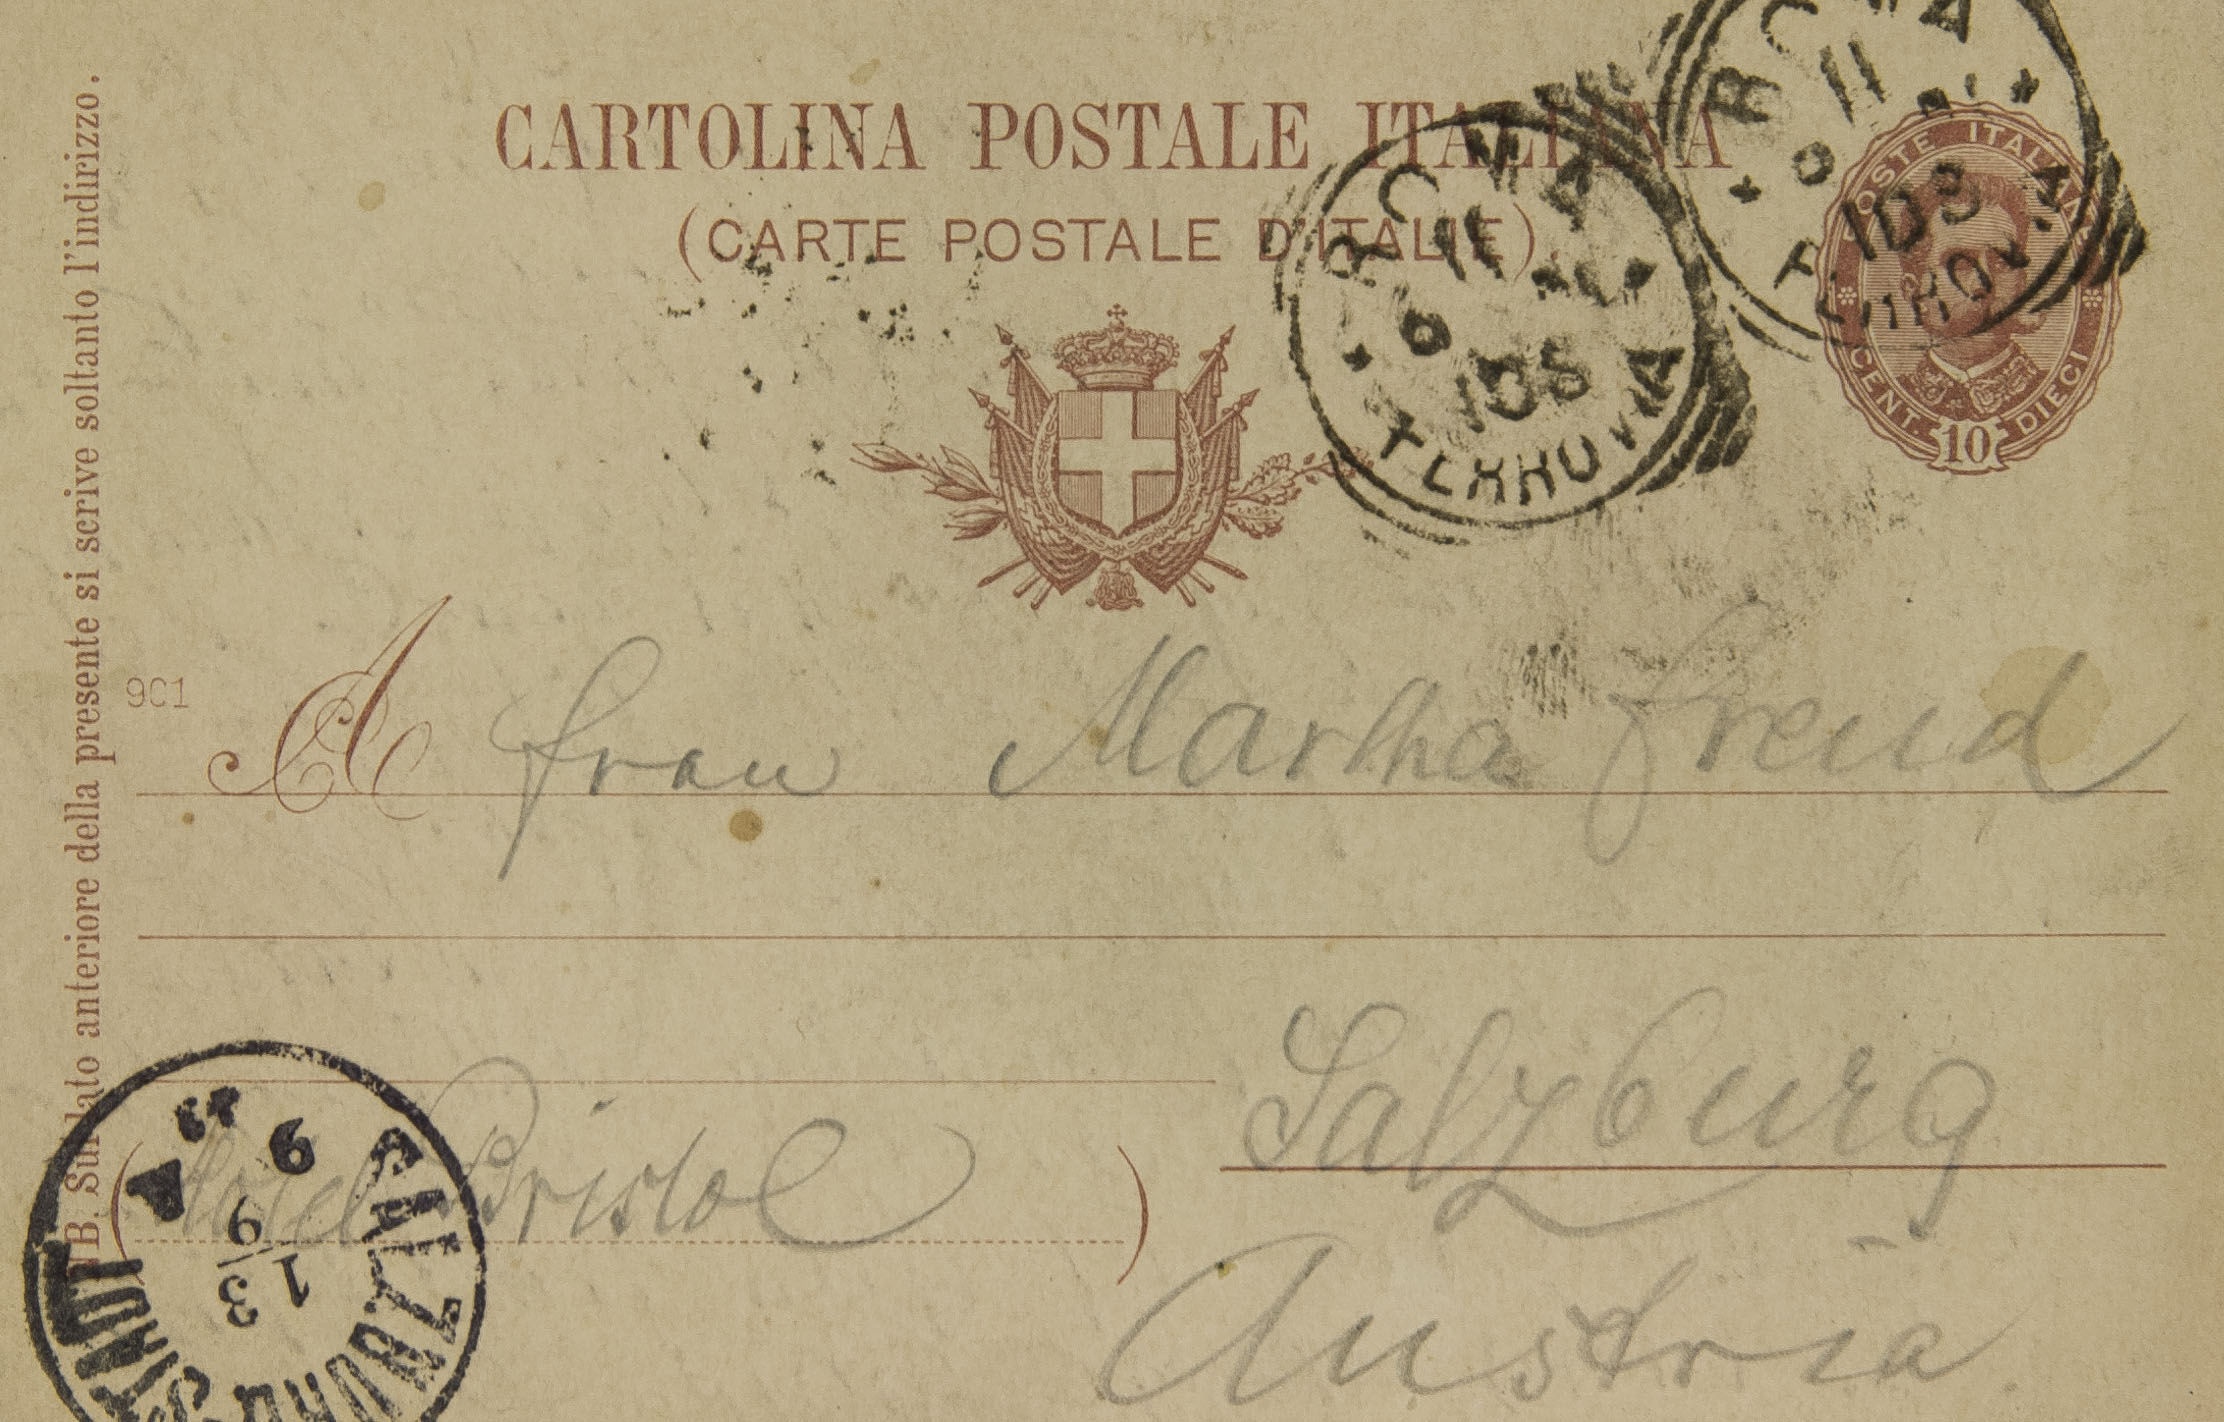 CARTOLINA POSTALE ITALIANA
(CARTE POSTALE D'ITALIE)
POSTE ITALIANE
CENT. 10 DIECI
ROMA
11
9
* FERROVIA *
ROMA
11
9
* FERROVIA *
NB. Sul lato anteriore della presente si scrive soltanto l'indirizzo.
901
A Frau Martha Freud
Salzburg
(Hotel Bristol)
Austria
SALZBURG STADT
13
9
9